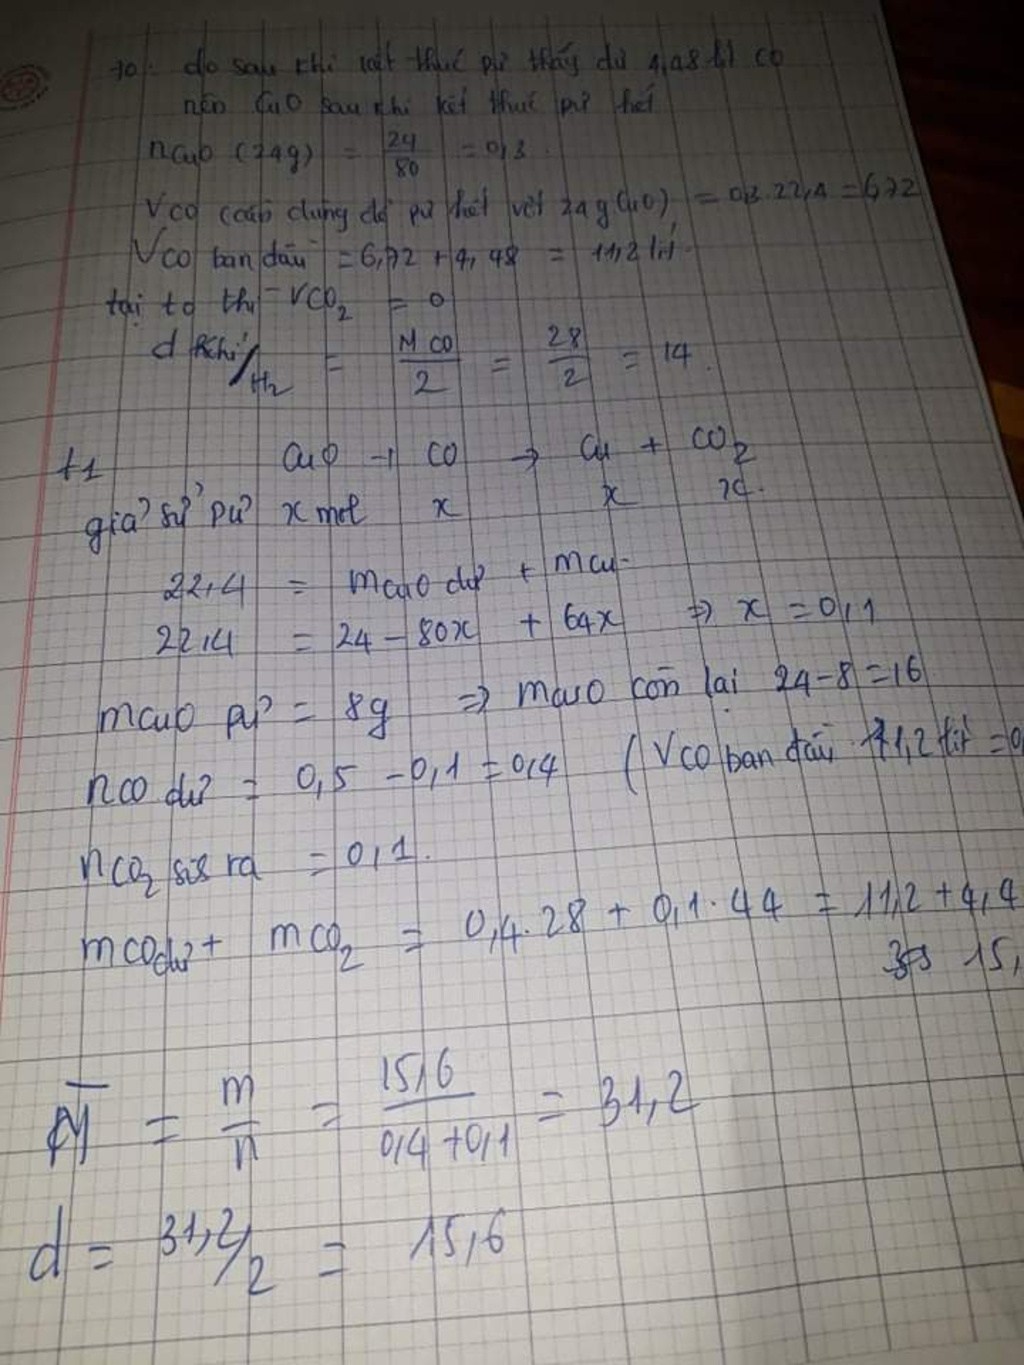 to: do sau khi kết thúc pứ thấy dư 4,48 lít CO
nên CuO sau khi kết thúc pứ hết
nCuO (24g) = 24/80 = 0,3.
VCO cần dùng để pứ hết với 24g CuO) = 0,3.22,4 = 6,72
VCO ban đầu = 6,72 + 4,48 = 11,2 lít.
tại to thì VCO2 = 0
d khí/H2 = MCO/2 = 28/2 = 14.
t1 CuO + CO → Cu + CO2
giả sử pứ x mol x x x.
22,4 = mCuO dư + mCu.
22,4 = 24 - 80x + 64x ⇒ x = 0,1
mCuO pứ = 8g ⇒ mCuO còn lại 24-8=16
nCO dư = 0,5 - 0,1 = 0,4 (VCO ban đầu 11,2 lít = 0
nCO2 sis ra = 0,1.
mCO dư + mCO2 = 0,4.28 + 0,1.44 = 11,2 + 4,4
15,
M = m/n = 15,6/0,4+0,1 = 31,2
d = 31,2/2 = 15,6